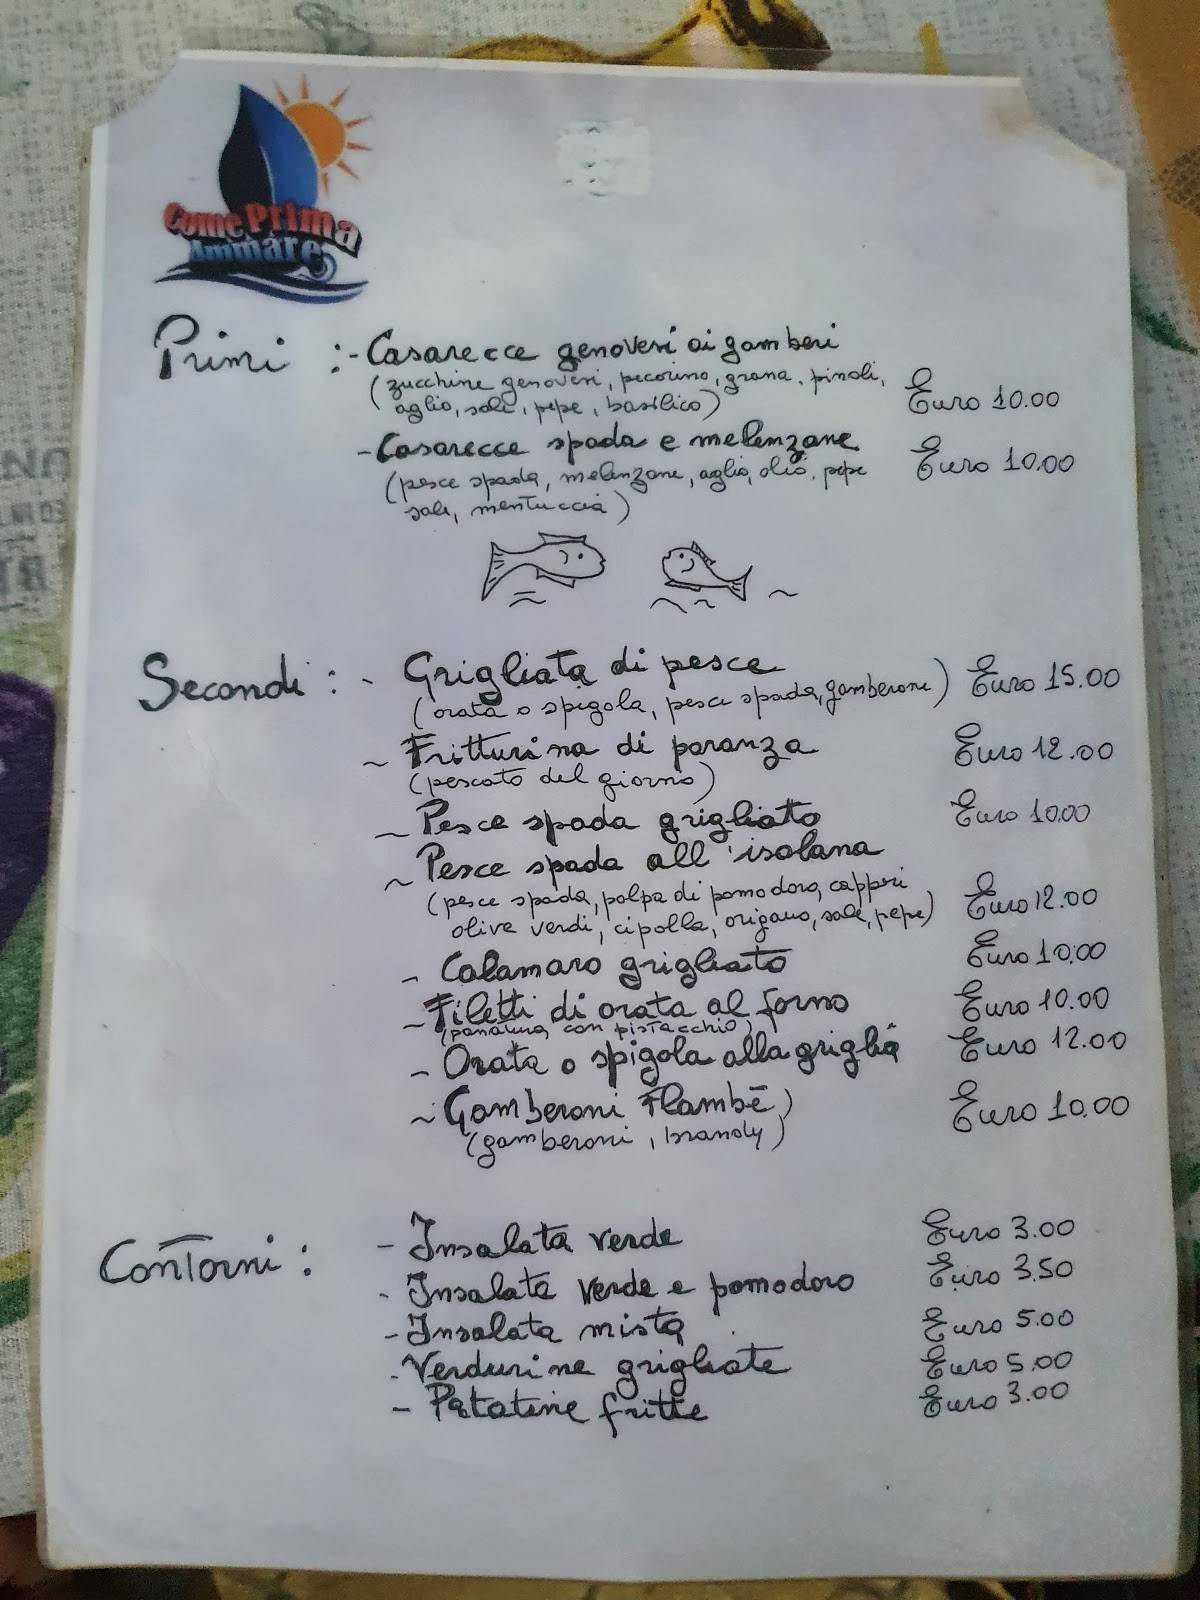 Come Prima
Ammare
Primi :- Casarecce genovesi ai gamberi
(zucchine genovesi, pecorino, grana, pinoli,
aglio, sale, pepe, basilico) Euro 10.00
- Casarecce spada e melenzane Euro 10.00
(pesce spada, melenzane, aglio, olio, pepe
sale, mentuccia)
Secondi : - Grigliata di pesce Euro 15.00
(orata o spigola, pesce spada, gamberoni)
~ Fritturina di paranza Euro 12.00
(pescato del giorno)
~ Pesce spada grigliato Euro 10.00
~ Pesce spada all'isolana
(pesce spada, polpa di pomodoro, capperi Euro 12.00
olive verdi, cipolla, origano, sale, pepe)
- Calamaro grigliato Euro 10.00
- Filetti di orata al forno Euro 10.00
(panatura con pistacchio)
~ Orata o spigola alla griglia Euro 12.00
~ Gamberoni Flambè Euro 10.00
(gamberoni, brandy)
Contorni : - Insalata verde Euro 3.00
- Insalata verde e pomodoro Euro 3.50
- Insalata mista Euro 5.00
- Verdurine grigliate Euro 5.00
- Patatine fritte Euro 3.00